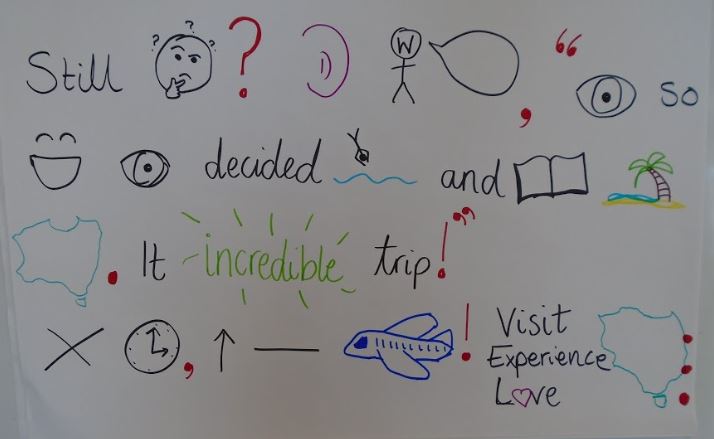 Still ? W , “ so
decided and
. It incredible trip! ”
, — ! Visit
Experience
Love